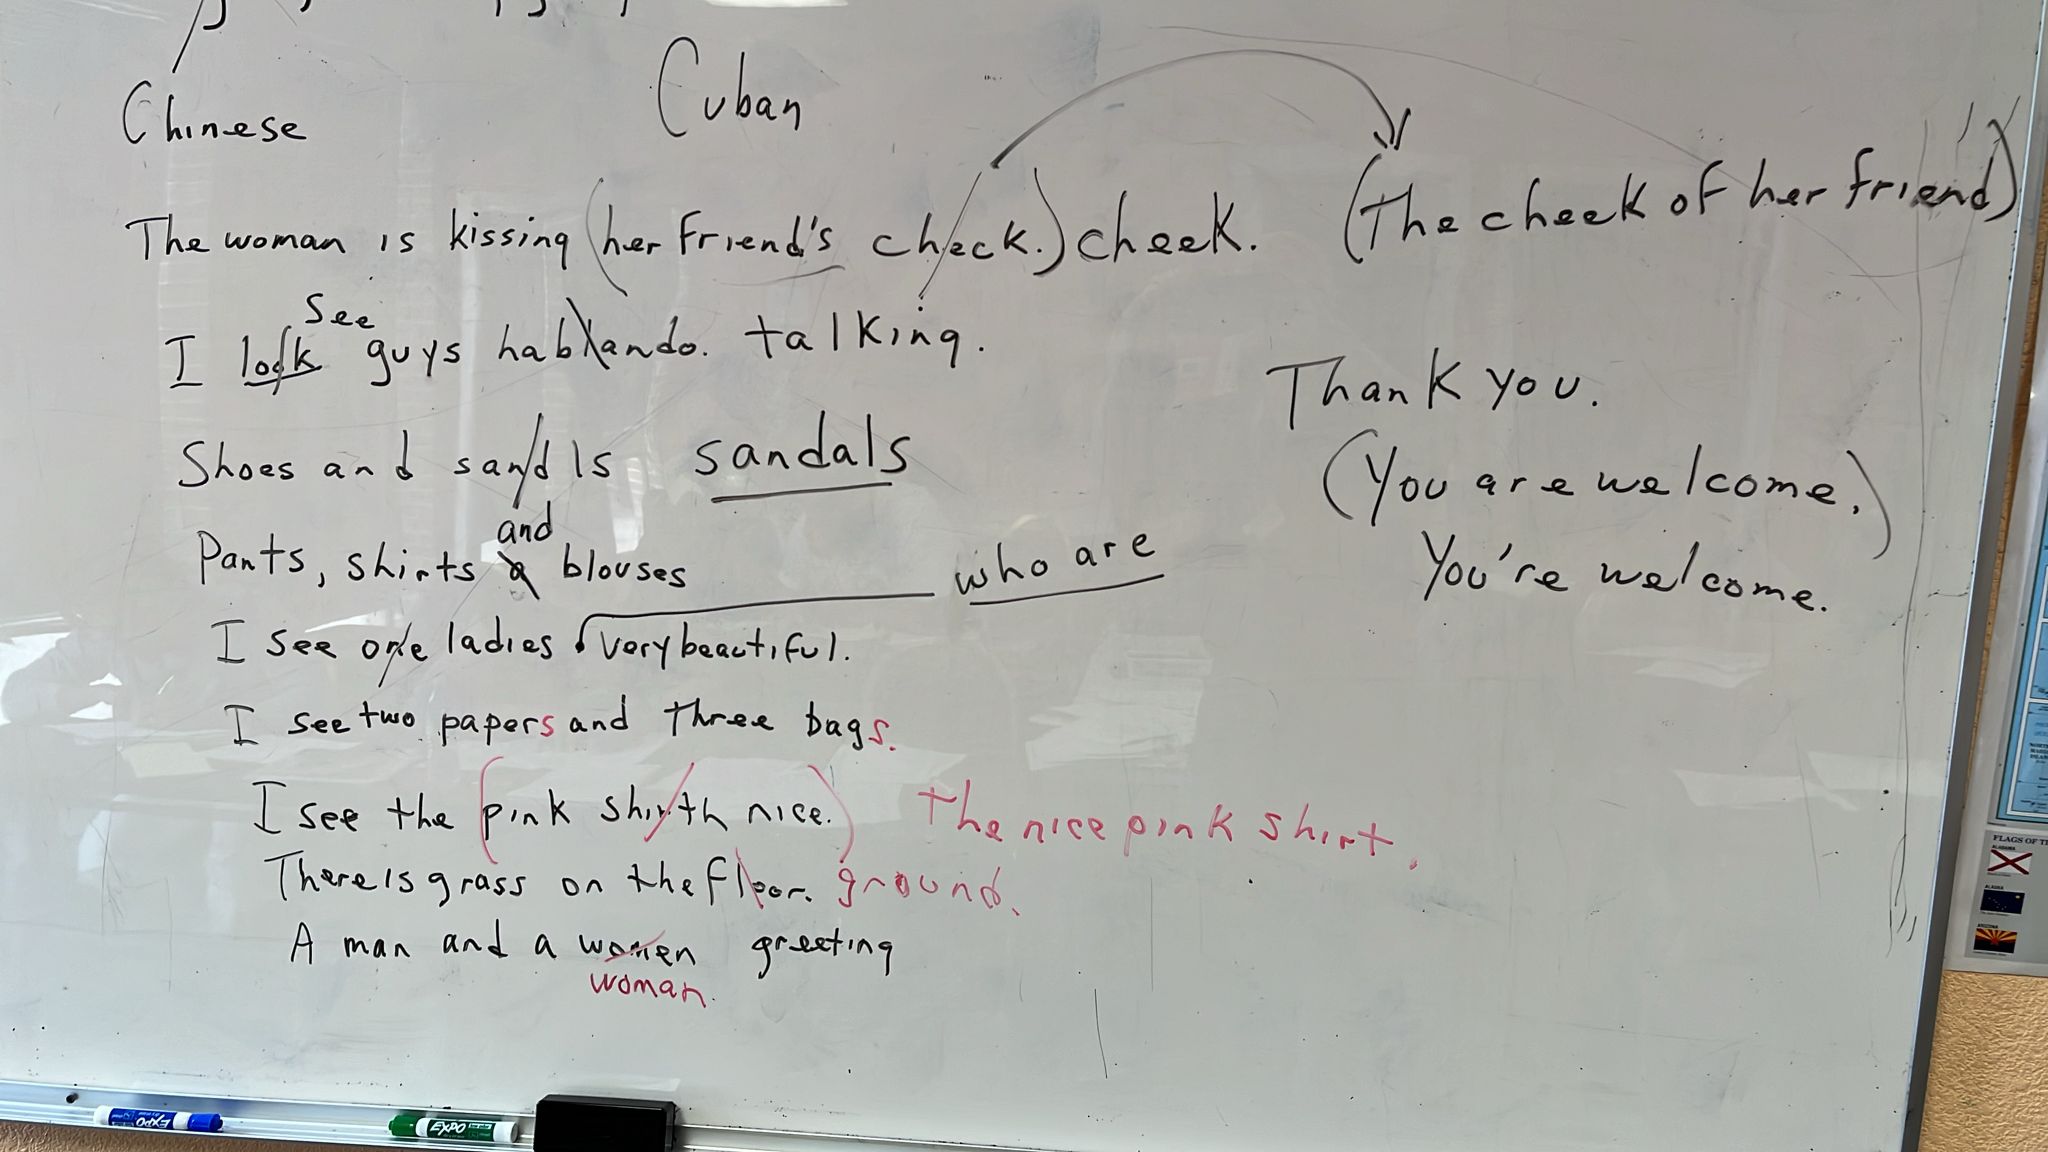 Chinese Cuban
The woman is kissing (her friend's check.) cheek. (The cheek of her friend)
see
I look guys hablando. talking.
Thank you.
Shoes and sandls sandals
(You are welcome.)
and
Pants, shirts a blouses
who are
You're welcome.
I see one ladies very beautiful.
I see two papers and three bags.
I see the (pink shirth nice.) The nice pink shirt.
There is grass on the floor. ground.
A man and a women greeting
woman.
EXPO
EXPO
FLAGS OF
ALABAMA
ALASKA
ARIZONA